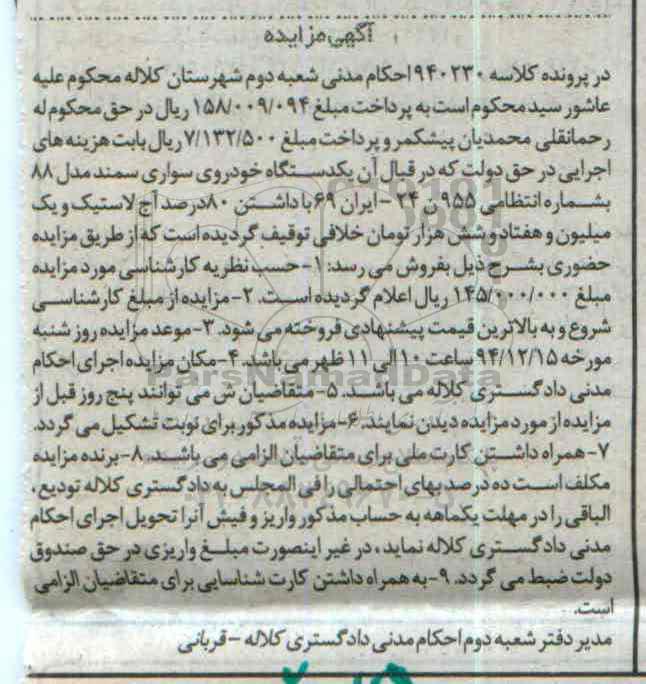 آگهی مزایده
در پرونده کلاسه ۹۴۰۲۳۰ احکام مدنی شعبه دوم شهرستان کلاله محکوم علیه
عاشور سید محکوم است به پرداخت مبلغ ۱۵۸/۰۰۹/۰۹۴ ریال در حق محکوم له
رحمانقلی محمدیان پیشکمر و پرداخت مبلغ ۷/۱۳۲/۵۰۰ ریال بابت هزینه های
اجرایی در حق دولت که در قبال آن یکدستگاه خودروی سواری سمند مدل ۸۸
بشماره انتظامی ۹۵۵ ن ۲۴ - ایران ۶۹ با داشتن ۸۰درصد آج لاستیک و یک
میلیون و هفتاد و شش هزار تومان خلافی توقیف گردیده است که از طریق مزایده
حضوری بشرح ذیل بفروش می رسد: ۱- حسب نظریه کارشناسی مورد مزایده
مبلغ ۱۴۵/۰۰۰/۰۰۰ ریال اعلام گردیده است. ۲- مزایده از مبلغ کارشناسی
شروع و به بالاترین قیمت پیشنهادی فروخته می شود. ۳- موعد مزایده روز شنبه
مورخه ۹۴/۱۲/۱۵ ساعت ۱۰ الی ۱۱ ظهر می باشد. ۴- مکان مزایده اجرای احکام
مدنی دادگستری کلاله می باشد. ۵- متقاضیان ش می توانند پنج روز قبل از
مزایده از مورد مزایده دیدن نمایند. ۶- مزایده مذکور برای نوبت تشکیل می گردد.
۷- همراه داشتن کارت ملی برای متقاضیان الزامی می باشد. ۸- برنده مزایده
مکلف است ده درصد بهای احتمالی را فی المجلس به دادگستری کلاله تودیع،
الباقی را در مهلت یکماهه به حساب مذکور واریز و فیش آنرا تحویل اجرای احکام
مدنی دادگستری کلاله نماید، در غیر اینصورت مبلغ واریزی در حق صندوق
دولت ضبط می گردد. ۹- به همراه داشتن کارت شناسایی برای متقاضیان الزامی
است.
مدیر دفتر شعبه دوم احکام مدنی دادگستری کلاله - قربانی
ParsNamadData